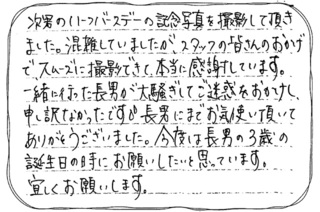 次男のハーフバースデーの記念写真を撮影して頂き
ました。混雑していましたが、スタッフの皆さんのおかげ
で、スムーズに撮影できて、本当に感謝しています。
一緒に行った長男が大騒ぎしてご迷惑をおかけし、
申し訳なかったですが長男にまでお気使い頂いて
ありがとうございました。今度は長男の3歳の
誕生日の時にお願いしたいと思っています。
宜しくお願いします。